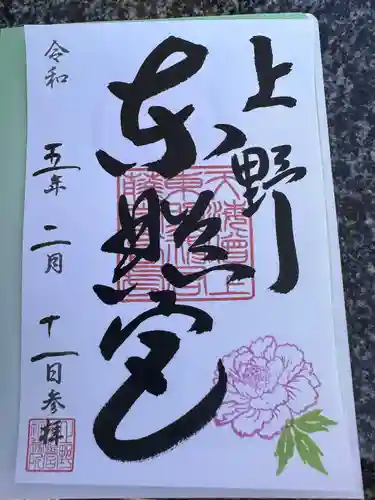 上野
東照宮
令和五年二月十一日参拝